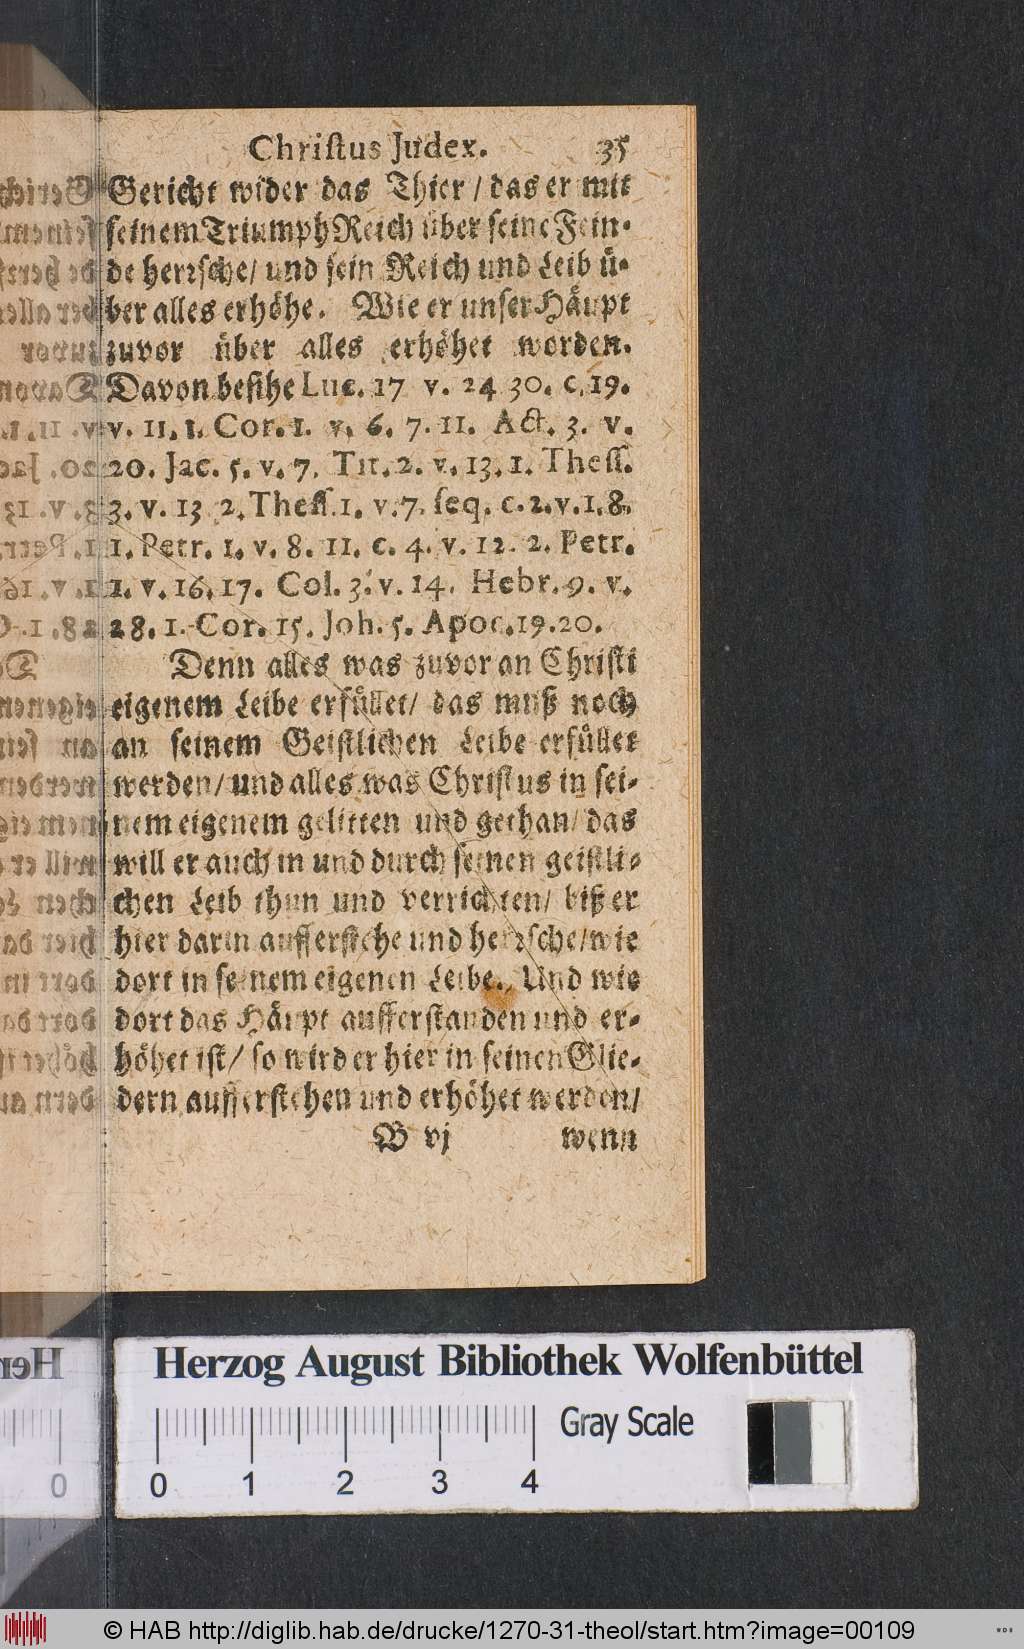 Christus Judex. 35
Gericht wider das Thier / das er mit
seinem Triumph Reich über seine Fein-
de herrsche / und sein Reich und Leib ü-
ber alles erhöhe. Wie er unser Häupt
zuvor über alles erhöhet worden.
Davon besihe Luc. 17 v. 24 30. c. 19.
v. 11. 1. Cor. 1. v. 6. 7. 11. Act. 3. v.
20. Jac. 5. v. 7. Tit. 2. v. 13. 1. Thess.
3. v. 13 2. Thess. 1. v. 7. seq. c. 2. v. 1. 8.
1. Petr. 1. v. 8. 11. c. 4. v. 12. 2. Petr.
1. v. 16. 17. Col. 3. v. 14. Hebr. 9. v.
28. 1. Cor. 15. Joh. 5. Apoc. 19. 20.
Denn alles was zuvor an Christi
eigenem Leibe erfüllet / das muß noch
an seinem Geistlichen Leibe erfüllet
werden / und alles was Christus in sei-
nem eigenem gelitten und gethan / das
will er auch in und durch seinen geistli-
chen Leib thun und verrichten / biß er
hier darin aufferstehe und herrsche / wie
dort in seinem eigenen Leibe. Und wie
dort das Häupt aufferstanden und er-
höhet ist / so wird er hier in seinen Glie-
dern aufferstehen und erhöhet werden /
B vj wenn
Herzog August Bibliothek Wolfenbüttel
Gray Scale
0 1 2 3 4
© HAB http://diglib.hab.de/drucke/1270-31-theol/start.htm?image=00109